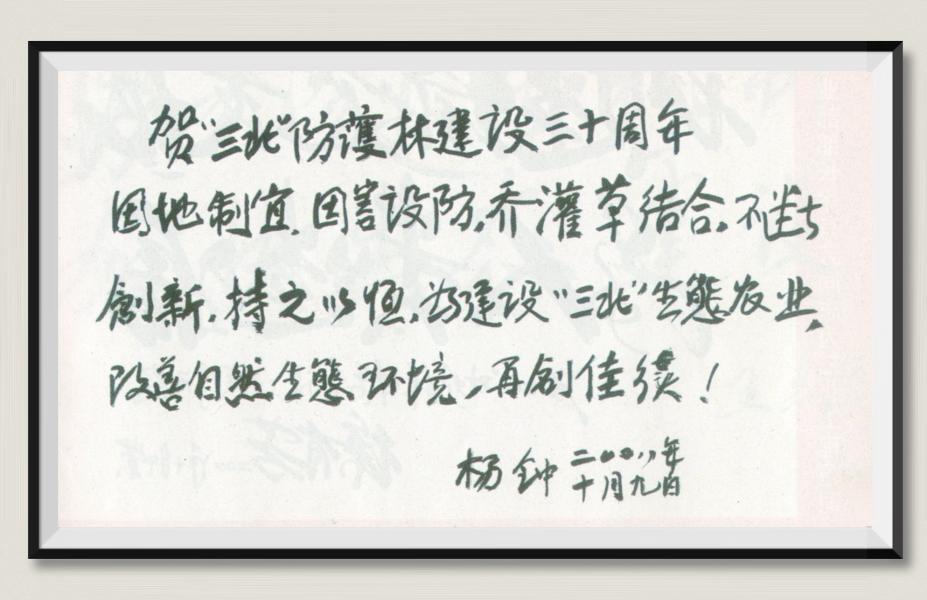 贺“三北”防护林建设三十周年
因地制宜.因害设防.乔灌草结合.不断
創新.持之以恒.为建设“三北”生態农业,
改善自然生態环境,再创佳绩！
杨钟 二00八年
十月九日